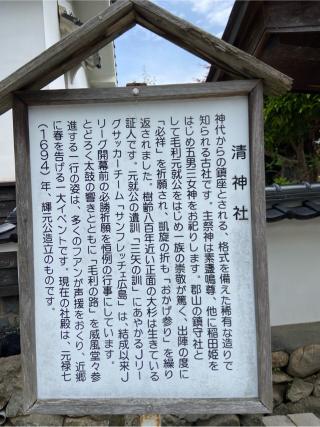 清神社
神代からの鎮座とされる、格式を備えた稀有な造りで
知られる古社です。主祭神は素盞鳴尊、他に稲田姫を
はじめ五男三女神をお祀りします。郡山の鎮守社と
して毛利元就公をはじめ一族の崇敬が篤く、出陣の度に
「必祥」を祈願され、凱旋の折も「おかげ参り」を繰り
返されました。樹齢八百年近い正面の大杉は生きている
証人です。元就公の遺訓「三矢の訓」にあやかるJリー
グサッカーチーム「サンフレッチェ広島」は、結成以来J
リーグ開幕前の必勝祈願を恒例の行事にしています。
とどろく太鼓の響きとともに「毛利の路」を威風堂々参
進する一行の姿は、多くのファンが声援をおくり、近郷
に春を告げる一大イベントです。現在の社殿は、元禄七
(1694)年、輝元公造立のものです。